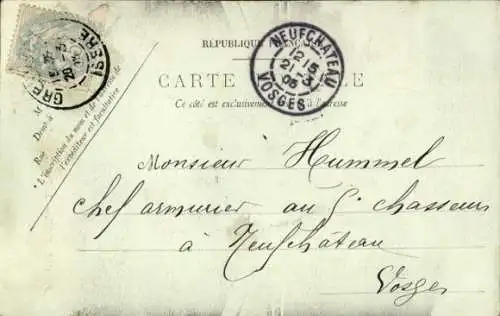 RÉPUBLIQUE FRANÇAISE
CARTE
Ce côté est exclusivement à l'adresse
NEUFCHATEAU
12 15
21 -3
06
VOSGES
GRE ISÈRE
M
Dont à
Rue
"L'inscription du nom et de l'adresse de
l'expéditeur est facultative
Monsieur Hummel
chef armurier au 5e chasseurs
à Neufchâteau
Vosges